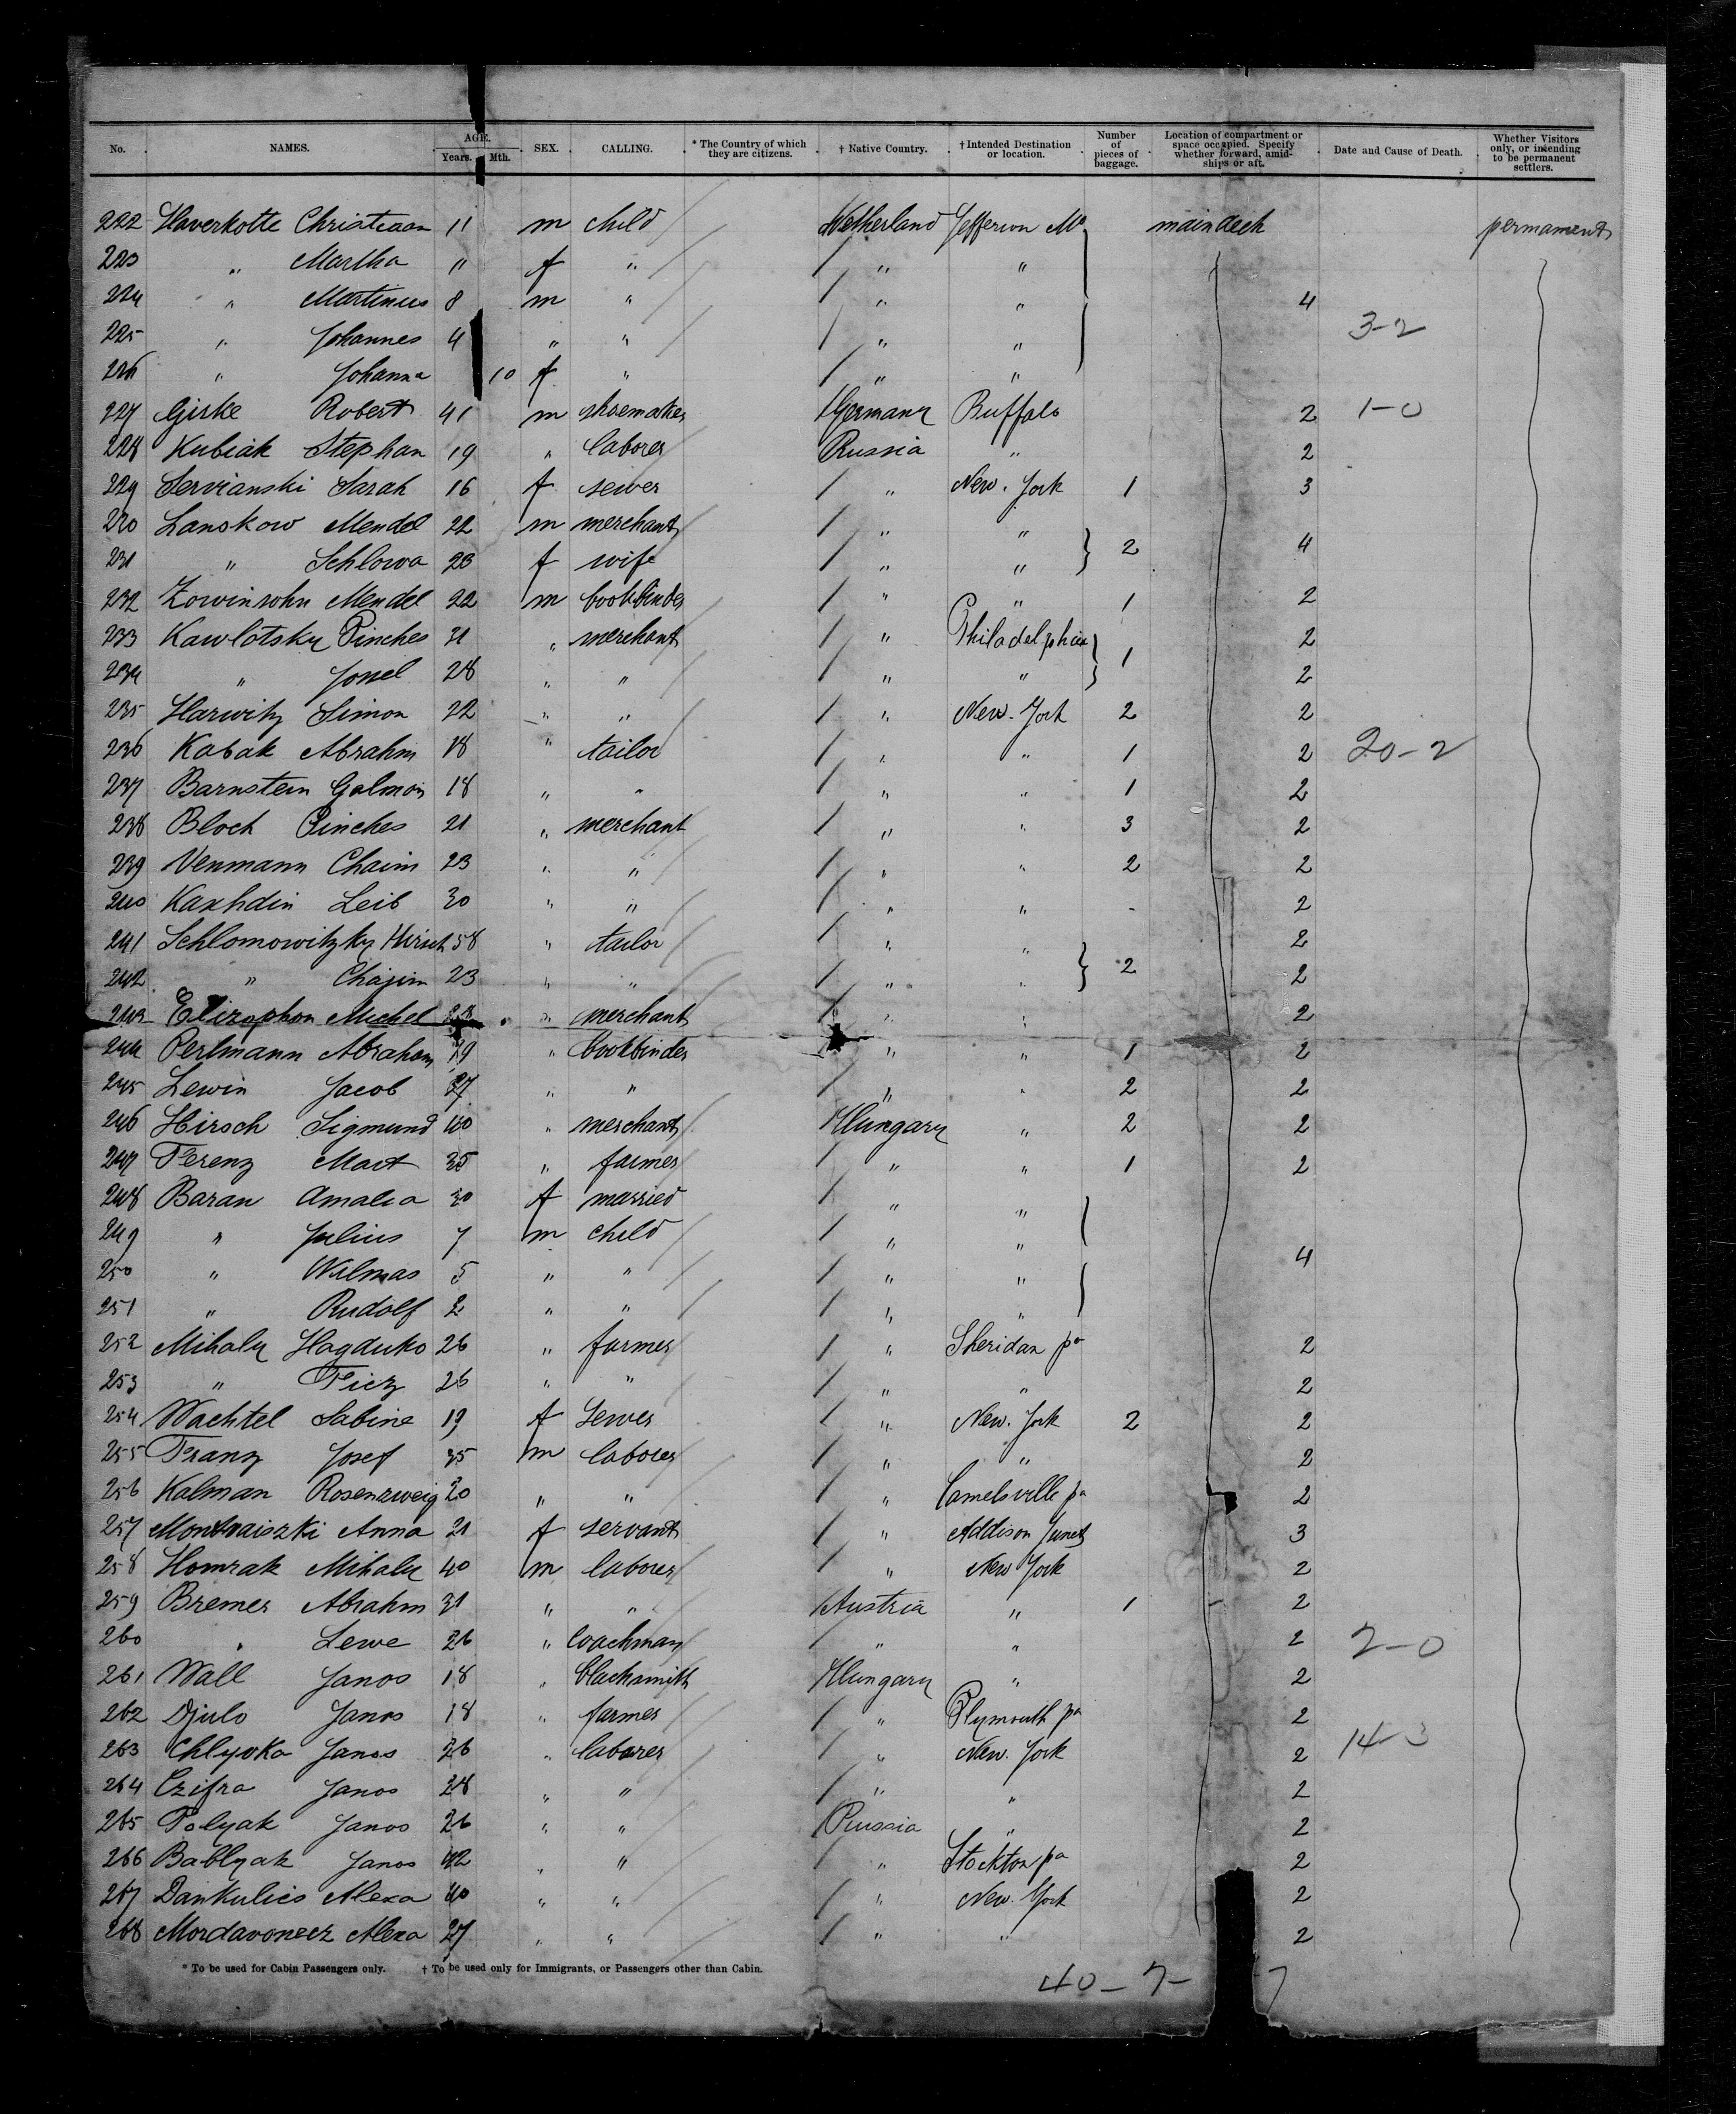 No. NAMES. AGE. Years. Mth. SEX. CALLING. * The Country of which they are citizens. † Native Country. † Intended Destination or location. Number of pieces of baggage. Location of compartment or space occupied. Specify whether forward, amidships or aft. Date and Cause of Death. Whether Visitors only, or intending to be permanent settlers.
222 Haverkotte Christiaan 11 m child Netherland Jefferson Mo maindeck permament
223 " Martha " f " " "
224 " Martinus 8 m " " " 4
225 " Johannes 4 " " " " 3-2
226 " Johanna 10 f " " "
227 Giske Robert 41 m shoemaker Germany Buffalo 2 1-0
228 Kubiak Stephan 19 " laborer Russia " 2
229 Servianski Sarah 16 f sewer " New. York 1 3
230 Lanskow Mendel 22 m merchant " "
231 " Schlowa 23 f wife " " 2 4
232 Zowinsohn Mendel 22 m bookbinder " " 1 2
233 Kawlotsky Pinches 31 " merchant " Philadelphia 2
234 " Jossel 28 " " " " 1 2
235 Harwitz Simon 22 " " " New. York 2 2
236 Kabak Abrahm 18 " tailor " " 1 2 20-2
237 Barnstein Galmon 18 " " " " 1 2
238 Bloch Pinches 21 " merchant " " 3 2
239 Venmann Chaim 23 " " " " 2 2
240 Kaxhdin Leib 30 " " " " - 2
241 Schlomowitzky Hirsch 58 " tailor " " 2
242 " Chajim 23 " " " " 2 2
243 Michel " merchant " " 2
244 Perlmann Abraham 19 " bookbinder " " 1 2
245 Lewin Jacob 37 " " " " 2 2
246 Hirsch Sigmund 40 " merchant Hungary " 2 2
247 Ferenz Mart 35 " farmer " " 1 2
248 Baran Amalia 30 f married " "
249 " Julius 7 m child " "
250 " Wilmas 5 " " " " 4
251 " Rudolf 2 " " " "
252 Mihaly Hagduko 26 " farmer " Sheridan pa 2
253 " Ficz 26 " " " " 2
254 Wachtel Sabine 19 f sewer " New. York 2 2
255 Franz Josef 35 m laborer " " 2
256 Kalman Rosenzweig 20 " " " Camelsville pa 2
257 Montvaiszki Anna 21 f servant " Addison Junct 3
258 Homrak Mihaly 40 m laborer " New York 2
259 Bremer Abrahm 31 " " Austria " 1 2
260 " Lewe 26 " coachman " " 2 2-0
261 Wall Janos 18 " blacksmith Hungary " 2
262 Djulo Janos 18 " farmer " Plymouth pa 2
263 Chlyoka Janos 26 " laborer " New. York 2 14-3
264 Czifra Janos 28 " " " " 2
265 Polyak Janos 26 " " Russia " 2
266 Bablyak Janos 42 " " " Stockton pa 2
267 Dankulics Alexa 40 " " " New. York 2
268 Mordavonecz Alexa 27 " " " " 2
* To be used for Cabin Passengers only. † To be used only for Immigrants, or Passengers other than Cabin.
40-7- 7